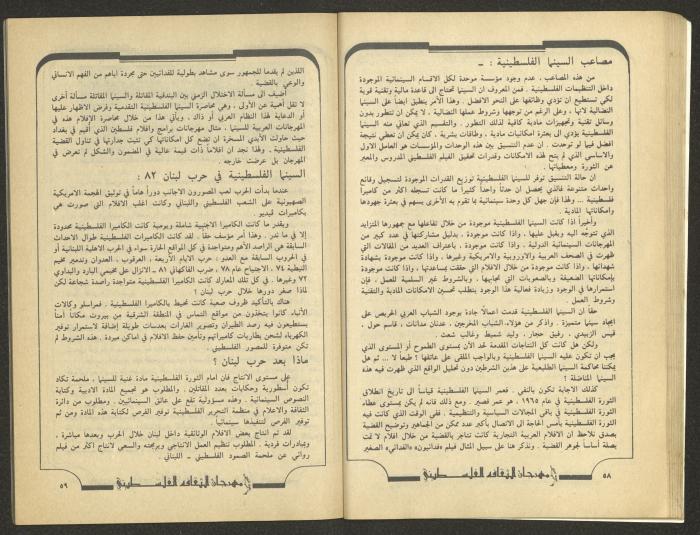 مصاعب السينما الفلسطينية : ـ
من هذه المصاعب ، عدم وجود مؤسسة موحدة لكل الاقسام السينمائية الموجودة
داخل التنظيمات الفلسطينية . فمن المعروف ان السينما تحتاج الى قاعدة مالية وتقنية قوية
لكي تستطيع ان تؤدي وظائفها على النحو الافضل . وهذا الأمر ينطبق ايضا على السينما
النضالية لانها ، وعلى الرغم من توجهها وشروط عملها النضالية . لا يمكن ان تتطور بدون
وسائل تقنية وتجهيزات مادية كافية لذلك التطور . والتقسيم الذي تعاني منه السينما
الفلسطينية يؤدي الى بعثرة امكانيات مادية ، وطاقات بشرية . كان يمكن ان تعطي نتيجة
افضل فيما لو توحدت . ان عدم التنسيق بين هذه الوحدات والمؤسسات هو العامل الاول
والاساسي الذي لم يتح لهذه الامكانات وقدرات تحقيق الفيلم الفلسطيني المدروس والمعبر
عن الثورة ومعطياتها .
ان حالة التنسيق توفر للسينما الفلسطينية توزيع القدرات الموجودة لتسجيل وقائع
واحداث متنوعة فالذي يحصل ان حدثاً واحداً كثيرا ما كانت تسجله اكثر من كاميرا
فلسطينية ... ولهذا فإن جهل كل وحدة سينمائية بما تقوم به الأخرى يسهم في بعثرة جهودها
وامكاناتها المادية .
وأخيراً اذا كانت السينما الفلسطينية موجودة من خلال تفاعلها مع جمهورها المتزايد
الذي تتوجه اليه ويقبل عليها ، واذا كانت موجودة ، بدليل مشاركتها في عدد كبير من
المهرجانات السينمائية الدولية . واذا كانت موجودة ، باعتراف العديد من المقالات التي
ظهرت في الصحف العربية والاوروبية والامريكية وغيرها ، واذا كانت موجودة بشهادة
شهدائها ، واذا كانت موجودة من خلال الافلام التي حققت بمساعدتها ، واذا كانت موجودة
بإمكاناتها الضعيفة وبالصعوبات التي تجابهها ، وبالشروط غير السلمية للعمل ، فإن
استمرارها في الوجود وزيادة فعالية هذا الوجود يتطلب تحسين الامكانات المادية والتقنية
وشروط العمل .
حقا ان السينما الفلسطينية قدمت اعمالاً جادة بوجود الشباب العربي المخرجين على
ايجاد سينما متميزة . واذكر من هؤلاء الشباب المخرجين ، عدنان مدانات ، قاسم حول ،
قيس الزبيدي ، رفيق حجار ، وليد شميط وغالب شعث .
ولكن هل كانت كل النتاجات المقدمة لحد الآن بمستوى الطموح أو المستوى الذي
يجب ان تكون عليه السينما الفلسطينية وبالواجب الملقى على عاتقها ؟ طبعا لا ... ثم هل
يمكننا محاكمة السينما الطليعية على هذين الشرطين دون تحليل الواقع الذي ظهرت فيه هذه
السينما المناضلة ؟
كذلك الاجابة تكون بالنفي . فعمر السينما الفلسطينية قياساً الى تاريخ انطلاق
الثورة الفلسطينية في عام ١٩٦٥ ، هو عمر قصير . ومع ذلك فانه لم يكن بمستوى عطاء
الثورة الفلسطينية في باقي المجالات السياسية والتنظيمية . ففي الوقت الذي كانت فيه
الثورة الفلسطينية بأمس الحاجة الى الاتصال بأكبر عدد ممكن من الجماهير وتوضيح القضية
بصدق نلاحظ ان الافلام العربية التجارية كانت تتاجر بالقضية من خلال افلام لا تمت
بصلة أساساً لجوهر القضية . ونذكر هنا على سبيل المثال فيلم «فدائيون» «الفدائي» الصغير
٥٨
مهرجان الثقافة الفلسطيني
اللذين لم يقدما للجمهور سوى مشاهد بطولية للفدائيين حتى مجردة اياهم من الفهم الانساني
والوعي بالقضية
أضيف الى مسألة الاختلال الزمني بين البندقية المقاتلة والسينما المقاتلة مسألة أخرى
لا تقل أهمية عن الأولى ، وهي محاصرة السينما الفلسطينية التقدمية وفرض الاظهار عليها
او الدعاية لهذا النظام العربي أو ذاك ، ويأتي هذا من خلال محاصرة الإفلام هذه في
المهرجانات العربية للسينما ، مثال مهرجانات برامج وافلام فلسطين الذي أقيم في بغداد
حيث حاولت الأيدي المسخرة ان تضع كل امكاناتها كي تثبت جدارتها في تناول القضية
الفلسطينية . ولهذا نجد ان افلاماً ذات قيمة عالية في المضمون والشكل لم تعرض في
المهرجان بل عرضت خارجه .
السينما الفلسطينية في حرب لبنان ٨٢ :
عندما بدأت الحرب لعب المصورون الاجانب دوراً هاماً في توثيق الهجمة الامريكية
الصهيونية على الشعب الفلسطيني واللبناني وكانت اغلب الافلام التي صورت هي
بكاميرات فيديو .
وبقدر ما كانت الكاميرا الاجنبية شاملة ويومية كانت الكاميرا الفلسطينية محدودة
إلا في ما ندر . وهذا أمر مؤسف حقا . لقد كانت الكاميرات الفلسطينية طوال الاحداث
السابقة هي الراصد الأهم ومتواجدة في كل المواقع الحارة سواء في الحرب الاهلية اللبنانية أو
في الحروب السابقة مع العدو : حرب الايام الأربعة ، العرقوب ، العدوان وتدمير مخيم
النبطية ٧٤ ، الاجتياح عام ٧٨ ، ضرب الفاكهاني ٨١ ـ الانزال على مخيمي البارد والبداوي
٧٢ وغيرها . في كل تلك المعارك كانت الكاميرا الفلسطينية متواجدة راصدة شجاعة لكن
لماذا صغر دورها خلال حرب لبنان ؟
هناك بالتأكيد ظروف صعبة كانت تحيط بالكاميرا الفلسطينية . فمراسلو وكالات
الأنباء كانوا يتخذون من مواقع التماس في المنطقة الشرقية من بيروت مكانا آمناً
يستطيعون فيه رصد الطيران وتصوير الغارات بعدسات طويلة إضافة لاستمرار توفير
الكهرباء لشحن بطاريات كاميراتهم وتأمين حفظ الافلام في اماكن مبردة . هذه الشروط لم
تكن متوفرة للمصور الفلسطيني .
ماذا بعد حرب لبنان ؟
على مستوى الانتاج فان امام الثورة الفلسطينية مادة غنية للسينما ، ملحمة تكاد
تكون أسطورية وحكايات بعدد المقاتلين . والمطلوب هو تجميع المادة الادبية وكتابة
النصوص السينمائية . وهذه مسؤولية تقع على عاتق السينمائيين . ومطلوب من دائرة
الثقافة والاعلام في منظمة التحرير الفلسطينية توفير الفرص لكتابة هذه المادة ومن ثم
توفير الفرص لتنفيذها سينمائيا .
لقد تم انتاج بعض الافلام الوثائقية داخل لبنان خلال الحرب وبعدها مباشرة ،
وبمبادرات فردية . المطلوب تنظيم العمل الانتاجي وبرمجته والسعي لانتاج اكثر من فيلم
روائي عن ملحمة الصمود الفلسطيني ـ اللبناني .
مهرجان الثقافة الفلسطيني
٥٩